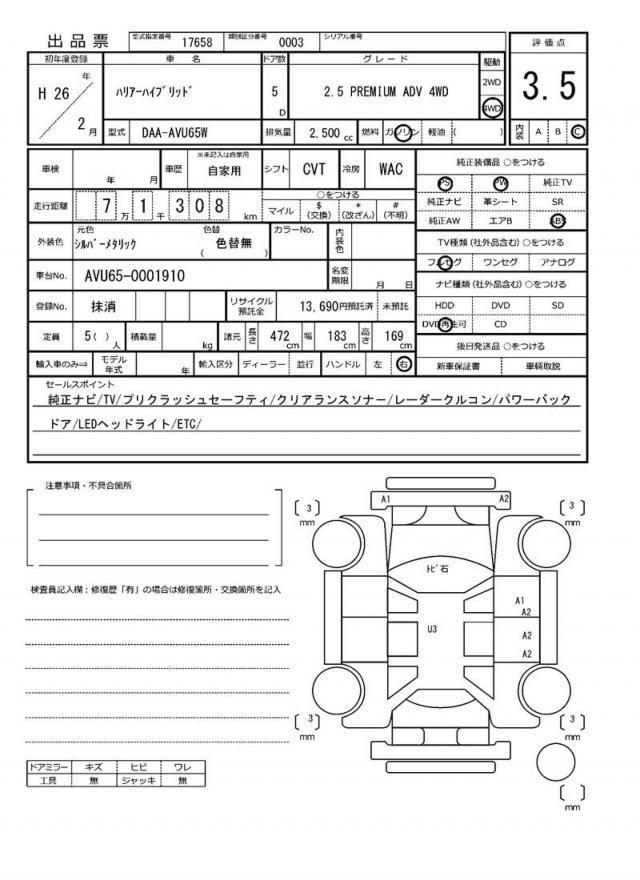 出品票 型式指定番号 17658 類別区分番号 0003 シリアル番号
評価点
3.5
内装 A B C
初年度登録 車名 ドア数 グレード 駆動
H 26 年 2 月 ハリアーハイブリッド 5 D 2.5 PREMIUM ADV 4WD 2WD 4WD
型式 DAA-AVU65W 排気量 2,500 cc 燃料 ガソリン 軽油 ( )
車検 年 月 車歴 ※未記入は自家用 自家用 シフト CVT 冷房 WAC
走行距離 7 万 1 千 3 0 8 km ○をつける
マイル $ (交換) * (改ざん) # (不明)
外装色 元色 シルバーメタリック 色替 ( 色替無 ) カラーNo. 内装色
車台No. AVU65-0001910 名変期限 月 日
登録No. 抹消 リサイクル預託金 13,690円預託済 未預託
定員 5( ) 人 積載量 kg 諸元 長さ 472 cm 幅 183 cm 高さ 169 cm
輸入車のみ⇒ モデル年式 年 輸入区分 ディーラー 並行 ハンドル 左 右
純正装備品 ○をつける
PS PW 純正TV
純正ナビ 革シート SR
純正AW エアB ABS
TV種類 (社外品含む) ○をつける
フルセグ ワンセグ アナログ
ナビ種類 (社外品含む) ○をつける
HDD DVD SD
DVD再生可 CD
後日発送品 ○をつける
新車保証書 車輌取説
セールスポイント
純正ナビ/TV/プリクラッシュセーフティ/クリアランスソナー/レーダークルコン/パワーバック
ドア/LEDヘッドライト/ETC/
注意事項・不具合箇所
検査員記入欄：修復歴「有」の場合は修復箇所・交換箇所を記入
ドアミラー キズ ヒビ ワレ
工具 無 ジャッキ 無
A1 A2
[ 3 ] mm
[ 3 ] mm
トビ石
A1
A2
U3
A2
A2
[ 3 ] mm
[ 3 ] mm
[ ] mm